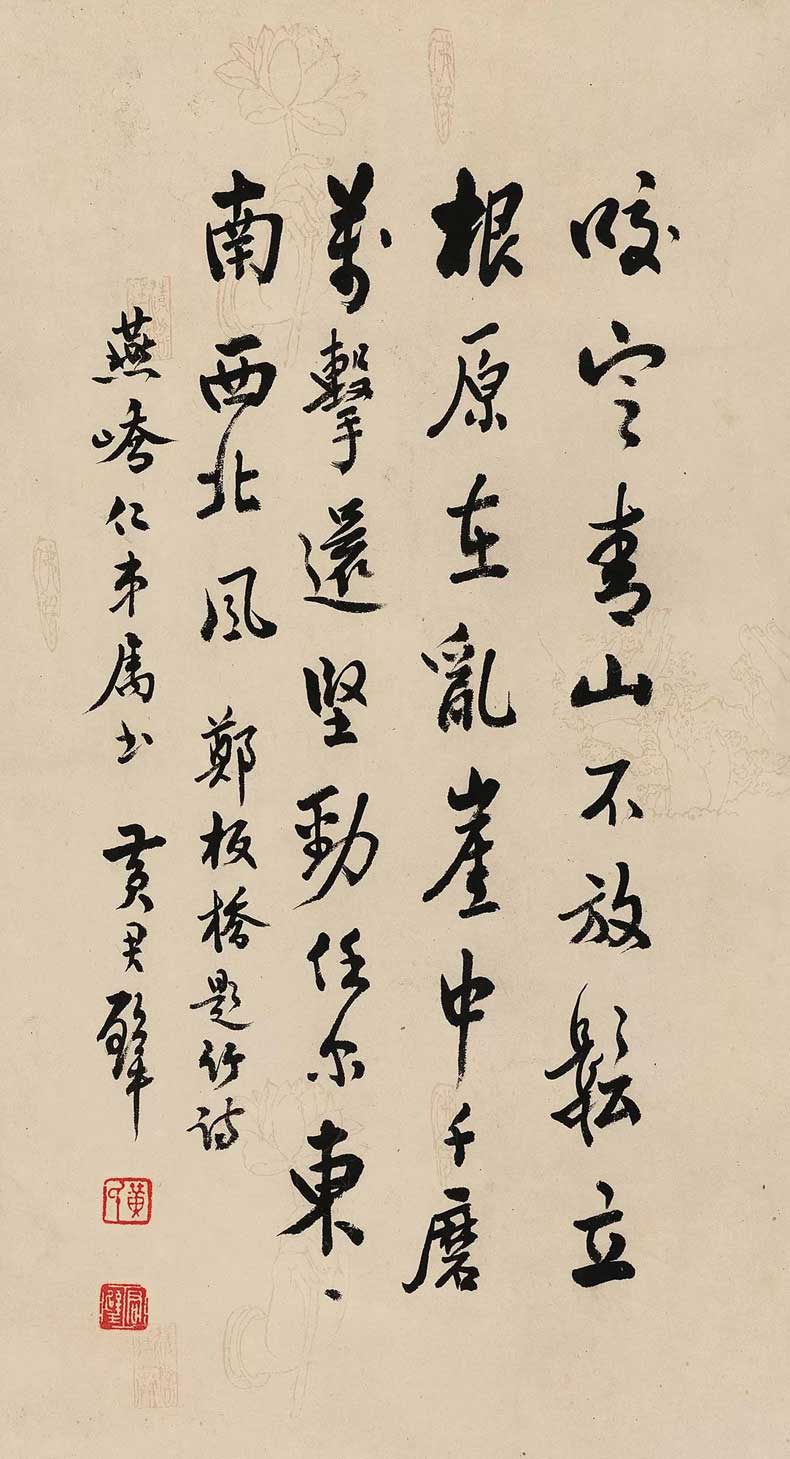 咬定青山不放鬆立
根原在亂崖中千磨
萬擊還堅勁任尔東、
南西北風 鄭板橋題竹詩
燕嶠仁弟属书 黃君璧
黃
君璧